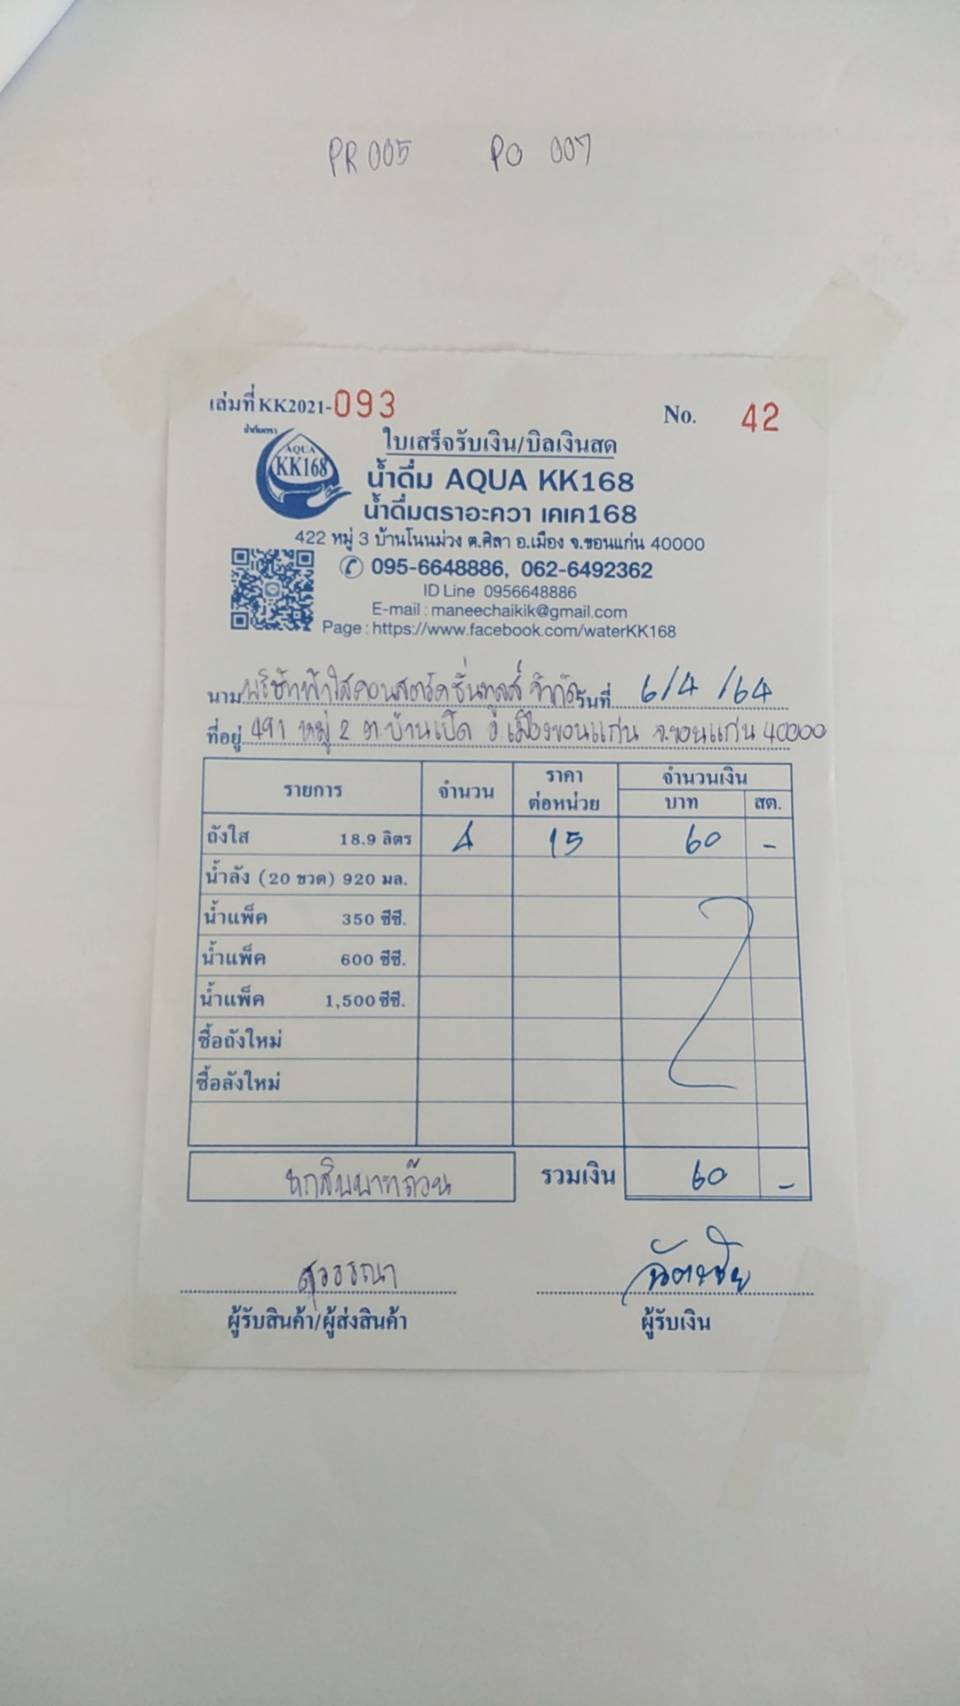 PR 005 PO 007
เล่มที่ KK2021-093 No. 42
น้ำดื่มตรา
AQUA
KK168
ใบเสร็จรับเงิน/บิลเงินสด
น้ำดื่ม AQUA KK168
น้ำดื่มตราอะควา เคเค168
422 หมู่ 3 บ้านโนนม่วง ต.ศิลา อ.เมือง จ.ขอนแก่น 40000
095-6648886, 062-6492362
ID Line 0956648886
E-mail : maneechaikik@gmail.com
Page : https://www.facebook.com/waterKK168
นาม บริษัทฟ้าใสคอนสตรัคชั่นทูลส์ จำกัด วันที่ 6/4/64
ที่อยู่ 491 หมู่ 2 ต.บ้านเป็ด อ.เมืองขอนแก่น จ.ขอนแก่น 40000
รายการ จำนวน ราคา ต่อหน่วย จำนวนเงิน
บาท สต.
ถังใส 18.9 ลิตร 4 15 60 -
น้ำลัง (20 ขวด) 920 มล.
น้ำแพ็ค 350 ซีซี.
น้ำแพ็ค 600 ซีซี.
น้ำแพ็ค 1,500 ซีซี.
ซื้อถังใหม่
ซื้อลังใหม่
หกสิบบาทถ้วน รวมเงิน 60 -
สุวรรณา ฉัตรชัย
ผู้รับสินค้า/ผู้ส่งสินค้า ผู้รับเงิน